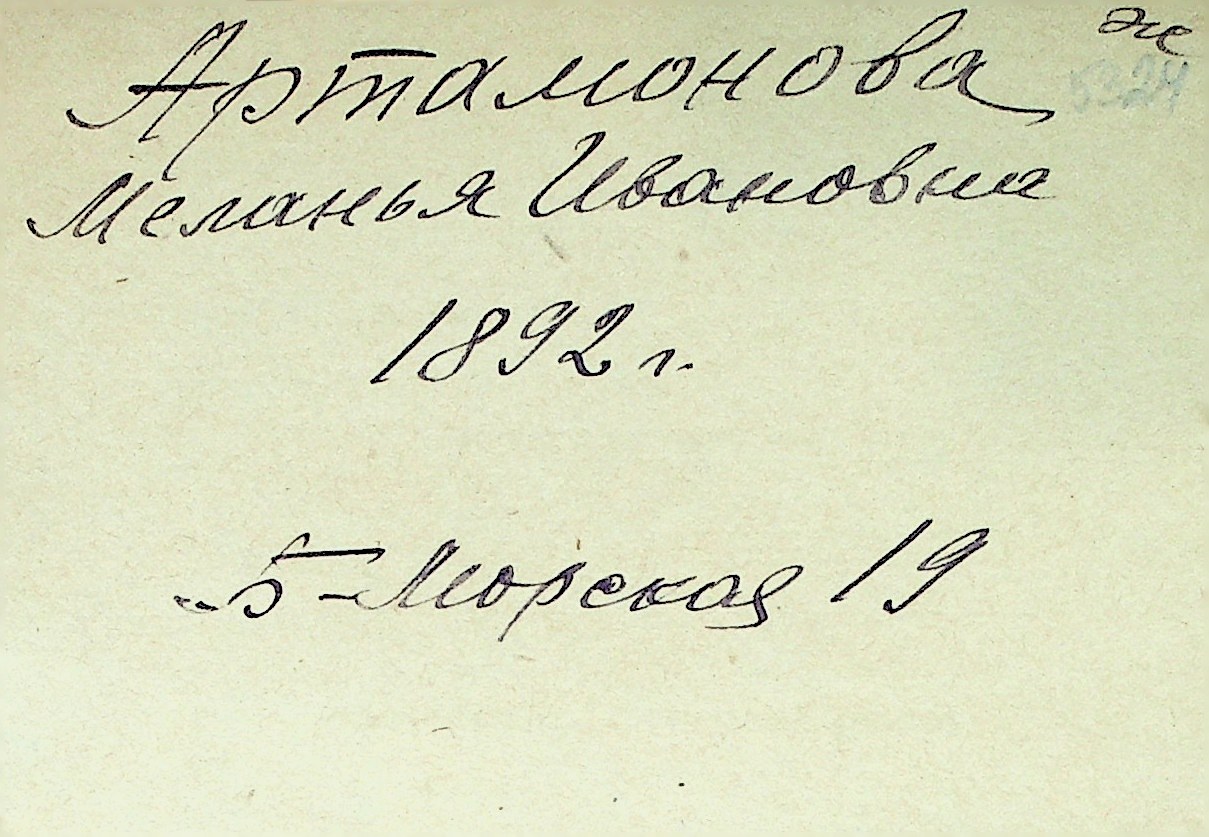 Артамонова
Меланья Ивановна
1892 г.
Б-Морская 19